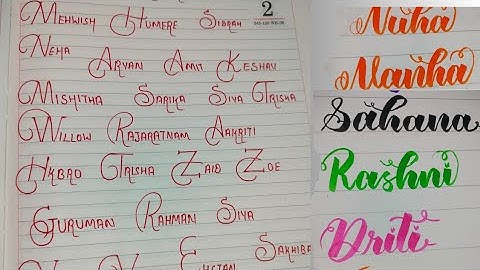 Mehwish Humere Sibrah
2
Neha Aryan Amit Keshav
Mishitha Sarika Siya Trisha
Willow Rajaratnam Aakriti
Hrbro Trisha Zaid Zoe
Guruman Rahman Siya
Sakhiba
Nuha
Manha
Sahana
Rashni
Driti